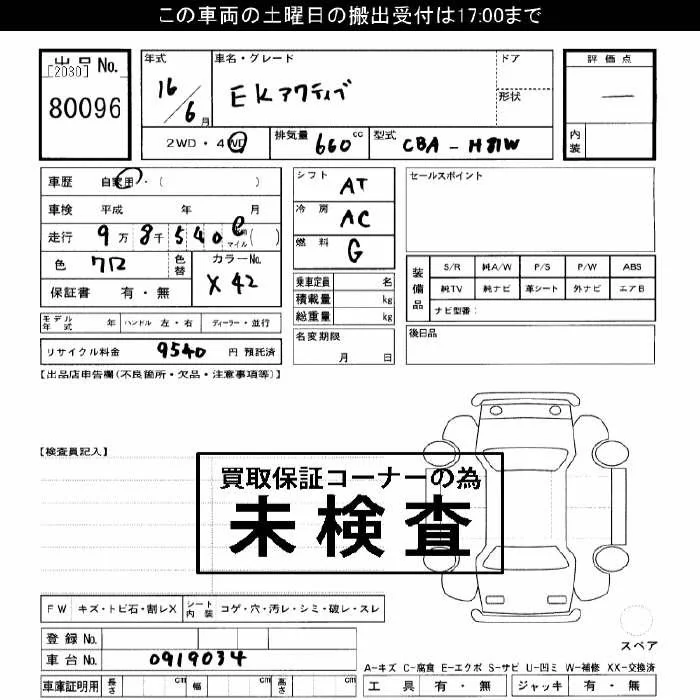 この車両の土曜日の搬出受付は17:00まで
出品 No.
[2030]
80096
年式
16/6月
車名・グレード
EKアクティブ
ドア
形状
評価点
—
内装
2WD・4WD
排気量 660 cc
型式 CBA-H81W
車歴 自家用・( )
車検 平成 年 月
走行 9万8千540
マイル( )
色 クロ
色替
カラーNo.
X42
保証書 有・無
モデル年式 年
ハンドル 左・右
ディーラー・並行
リサイクル料金 9540 円 預託済
シフト AT
冷房 AC
燃料 G
乗車定員 名
積載量 kg
総重量 kg
名変期限
月 日
セールスポイント
装備品
S/R 純A/W P/S P/W ABS
純TV 純ナビ 革シート 外ナビ エアB
ナビ型番:
後日品
【出品店申告欄(不良箇所・欠品・注意事項等)】
【検査員記入】
買取保証コーナーの為
未検査
FW キズ・トビ石・割レX
シート内装 コゲ・穴・汚レ・シミ・破レ・スレ
登録 No.
車台 No. 0919034
車庫証明用 長さ cm 幅 cm 高さ cm
スペア
A-キズ C-腐食 E-エクボ S-サビ U-凹ミ W-補修 XX-交換済
工具 有・無 ジャッキ 有・無